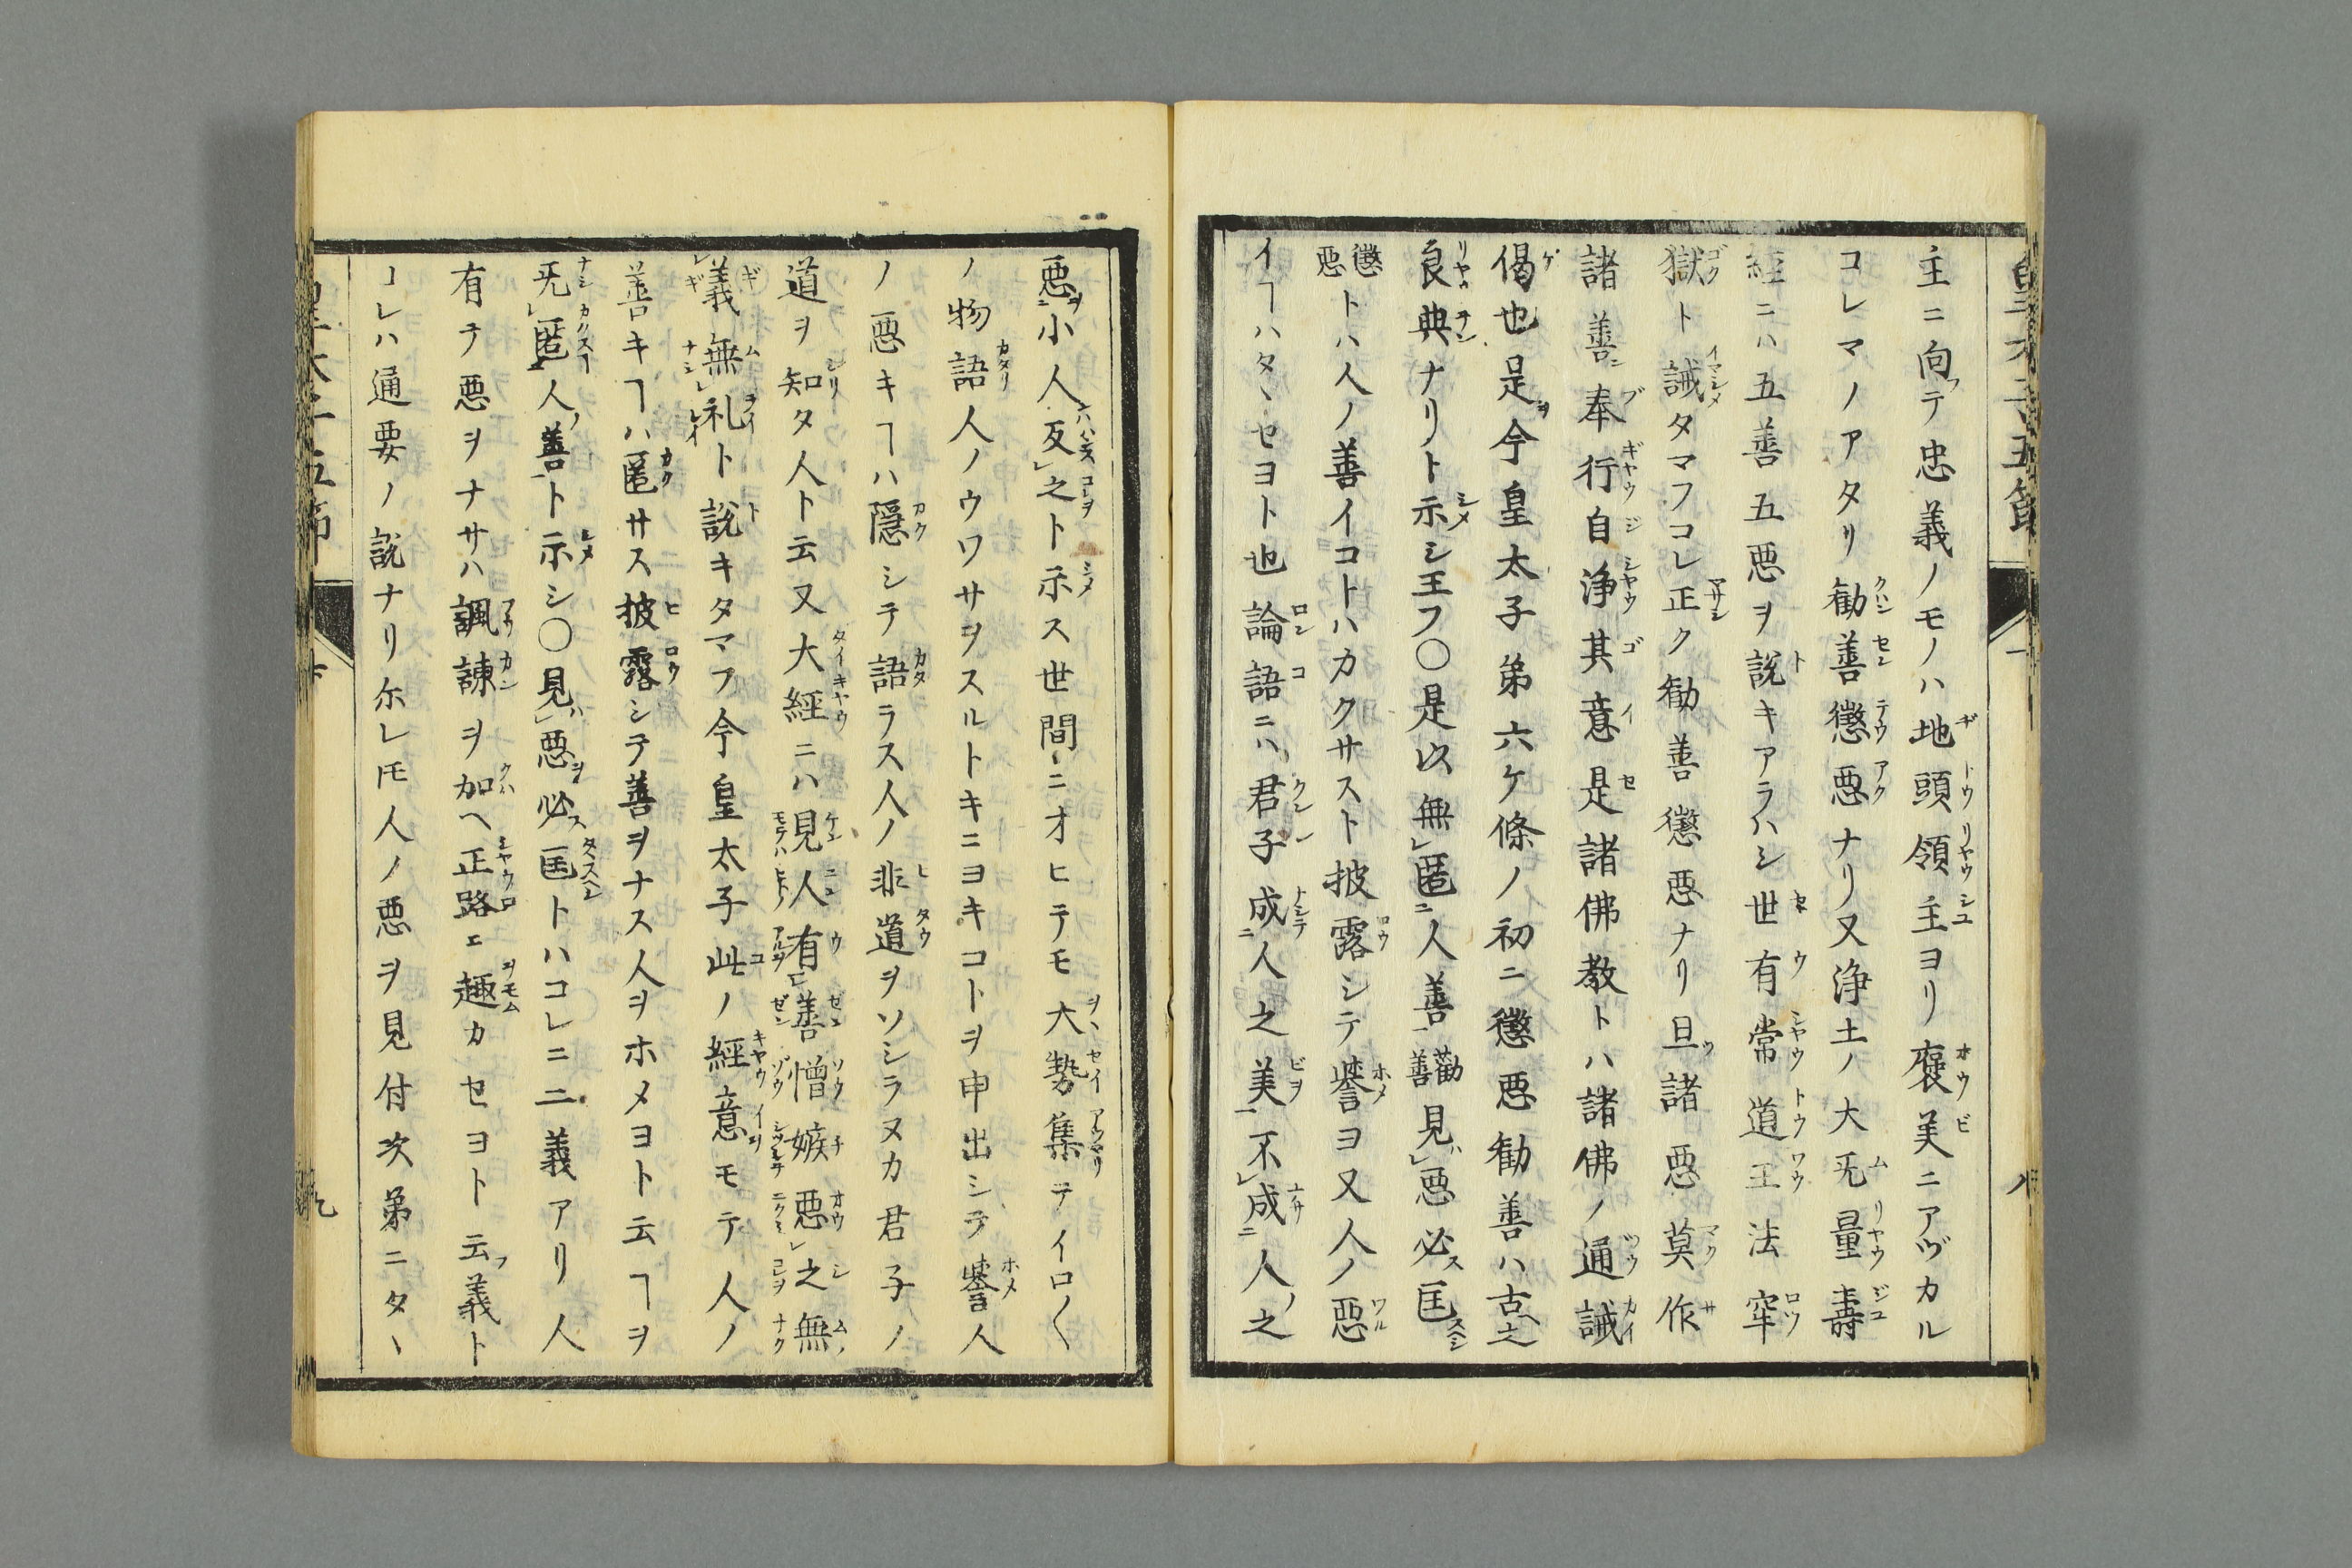 主ニ向テ忠義ノモノハ地頭領主ヨリ褒美ニアヅカル
コレマノアタリ勧善懲悪ナリ又浄土ノ大旡量壽
經ニハ五善五悪ヲ説キアラハシ世有常道王法牢
獄ト誡タマフコレ正ク勧善懲悪ナリ旦諸悪莫作
諸善奉行自浄其意是諸佛教トハ諸佛ノ通誡
偈也是今皇太子第六ケ條ノ初ニ懲悪勧善ハ古之
良典ナリト示シ王フ〇是以無匿人善勸善見悪必匡
懲悪トハ人ノ善イコトハカクサスト披露シテ譽ヨ又人ノ惡
イヿハタヽセヨト也論語ニハ君子成人之美不成人之
悪小人反之ト示ス世間ニオヒテモ大勢集テイロ〱
ノ物語人ノウワサヲスルトキニヨキコトヲ申出シテ譽人
ノ悪キヿハ隠シテ語ラス人ノ非道ヲソシラヌカ君子ノ
道ヲ知タ人ト云又大經ニハ見人有善憎嫉悪之無
義無礼ト説キタマフ今皇太子此ノ經意モテ人ノ
善キヿハ匿サス披露シテ善ヲナス人ヲホメヨト云ヿヲ
旡匿人善ト示シ〇見悪必匡トハコレニ二義アリ人
有テ悪ヲナサハ諷諌ヲ加ヘ正路エ趣カセヨト云義ト
コレハ通要ノ説ナリ尓レ𪜈人ノ悪ヲ見付次第ニタヽ